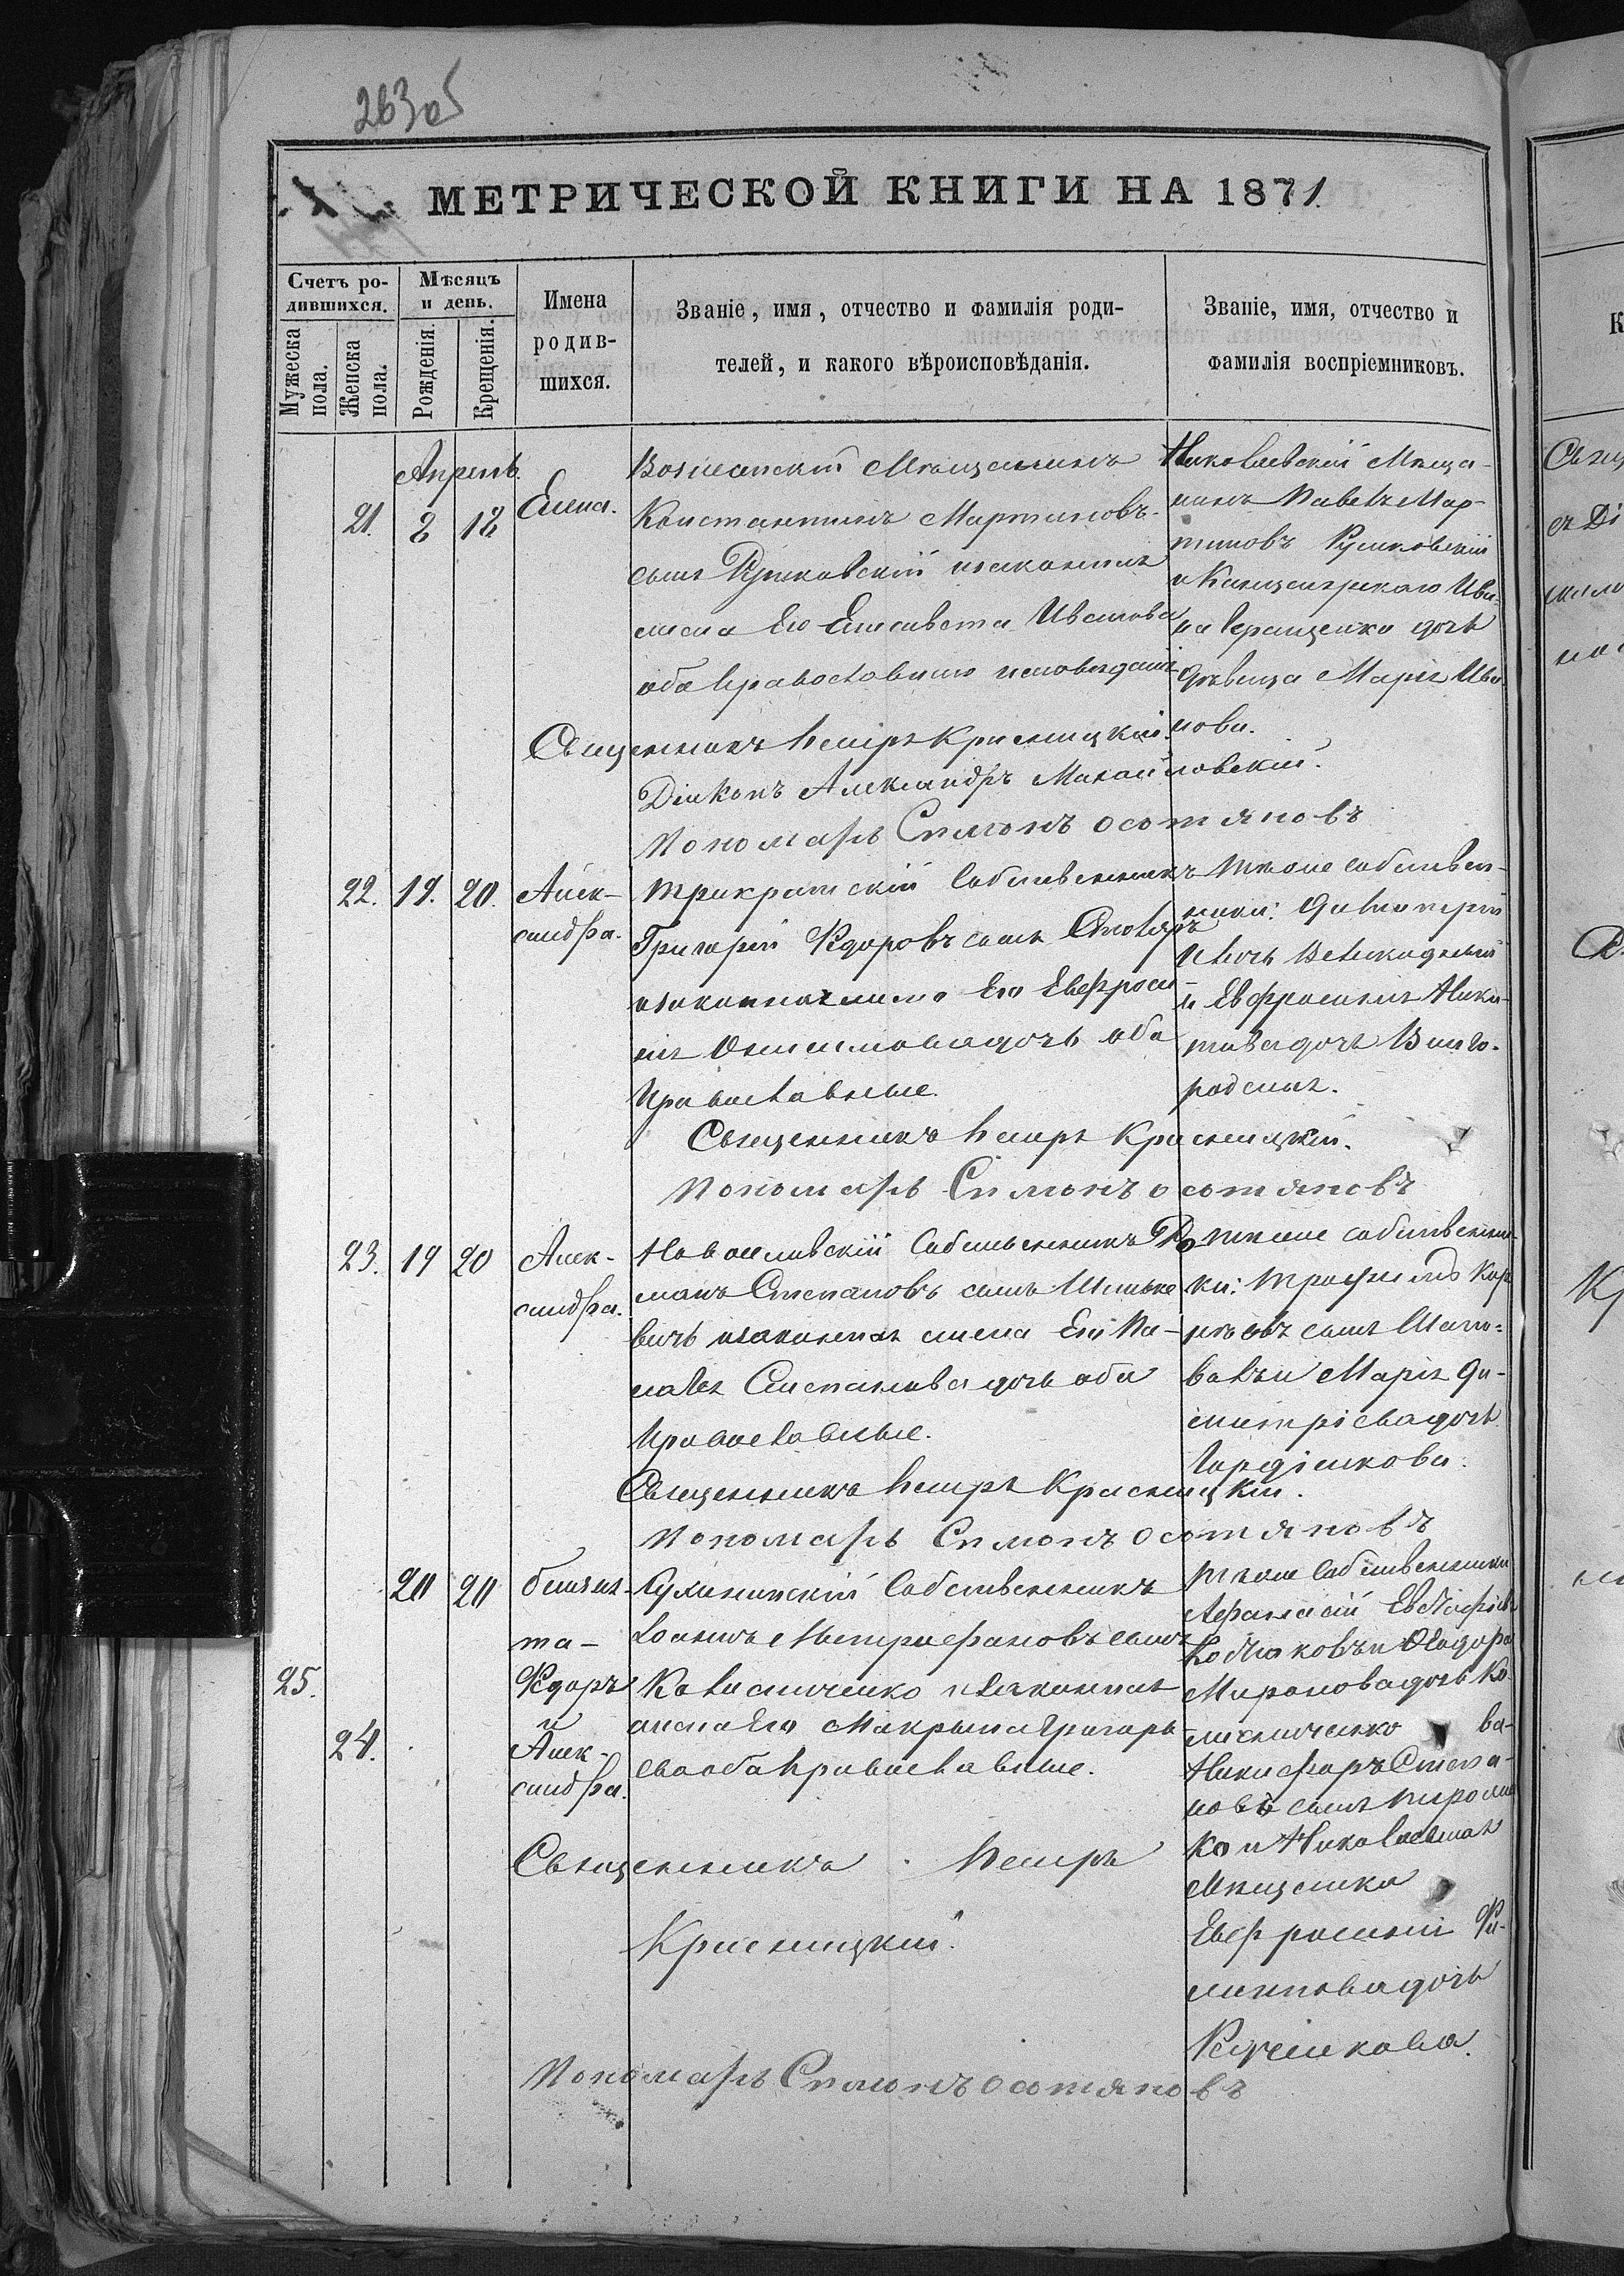 263об
МЕТРИЧЕСКОЙ КНИГИ НА 1871
Счетъ ро-
дившихся.
Мужеска
пола.
Женска
пола.
Мѣсяцъ
и день.
Рожденія.
Крещенія.
Имена
родив-
шихся.
Званіе, имя, отчество и фамилія роди-
телей, и какого вѣроисповѣданія.
Званіе, имя, отчество и
фамилія воспріемниковъ.
Апрель.
21. 2 12 Елена.
Вознесенскій Мѣщанинъ
Константинъ Мартиновъ
сынъ изаконная
жена Его Елисавета Иванова
оба Православнаго исповеданія
Николаевскій Мѣща-
нинъ Павелъ Мар-
тиновъ
и Канцелярскаго Ива-
на Геращенко дочь
Дѣвица Марія Ива-
нова.
Священникъ Петръ Красницкій.
Діаконъ Александръ Михайловскій.
Пономарь Симонъ Осотяновъ
22. 19. 20. Алек-
сандра.
Трикратскій Собственникъ
Григорій Ѳедоровъ сынъ Столяръ
изаконная жена Его Евфроси-
нія Онисимова дочь оба
Православные.
Тѣже собствен-
ники:
Великодный
и Евфросинія Ники-
това дочь Виного-
родская.
Священникъ Петръ Красницкій.
Пономарь Симонъ Осотяновъ
23. 19 20 Алек-
сандра.
Новоселивскій Собственникъ Ро-
манъ Степановъ сынъ
вичъ изаконная жена Его Пе-
лагея Степанова дочь оба
Православные.
Тѣже собственни-
ки: Трофимъ Кар-
повъ сынъ Шапо-
валъ и Марія Ди-
митріева дочь
Гордіенкова.
Священникъ Петръ Красницкій.
Пономарь Симонъ Осотяновъ
20 20 близня-
та-
25. Ѳедоръ
и
24. Алек-
сандра.
Собственникъ
Іоаннъ Митрофановъ сынъ
Калиниченко изаконная
жена Его Макрына Григорь-
ева оба Православные.
Тѣже Собственники
Афанасій Евстафіевъ
и Ѳеодора
Миронова дочь Ка-
линиченко
Никифоръ Степа-
новъ сынъ
ко и Николаевская
Мѣщанка
Евфросинія Фи-
липпова дочь
Священникъ Петръ
Красницкій.
Пономарь Симонъ Осотяновъ